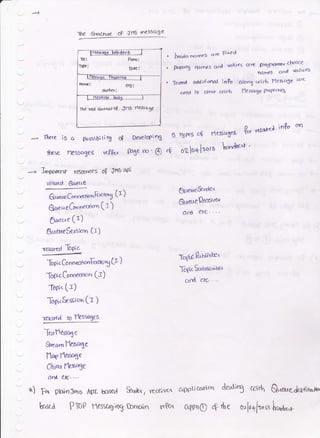 The structure of JMS message
Message headers
To: From:
Type: Date:
Message Properties
Name: Org:
Author:
Message Body
The total structure of JMS Message
• header names are fixed
• property names and values are programmer choice
names and values
• To send additional info along with Message we
need to come with Message Properties
→ There is a possibility of Developing 5 types of Messages for related info on
these messages refer page no: 6 of 02/04/2012 handout.
→ Important resources of JMS API
related Queue
QueueConnectionFactory (I)
QueueConnection (I)
Queue (I)
QueueSession (I)
QueueSender
QueueReceiver
and etc....
related Topic
TopicConnectionFactory (I)
TopicConnection (I)
Topic (I)
TopicSession (I)
TopicPublisher
TopicSubscriber
and etc....
related to Messages
TextMessage
StreamMessage
MapMessage
ObjectMessage
and etc....
*) For plain Jms API based Sender, receiver application dealing with Queue destination
based PTOP Messaging Domain refer app① of the 02/04/2012 handout